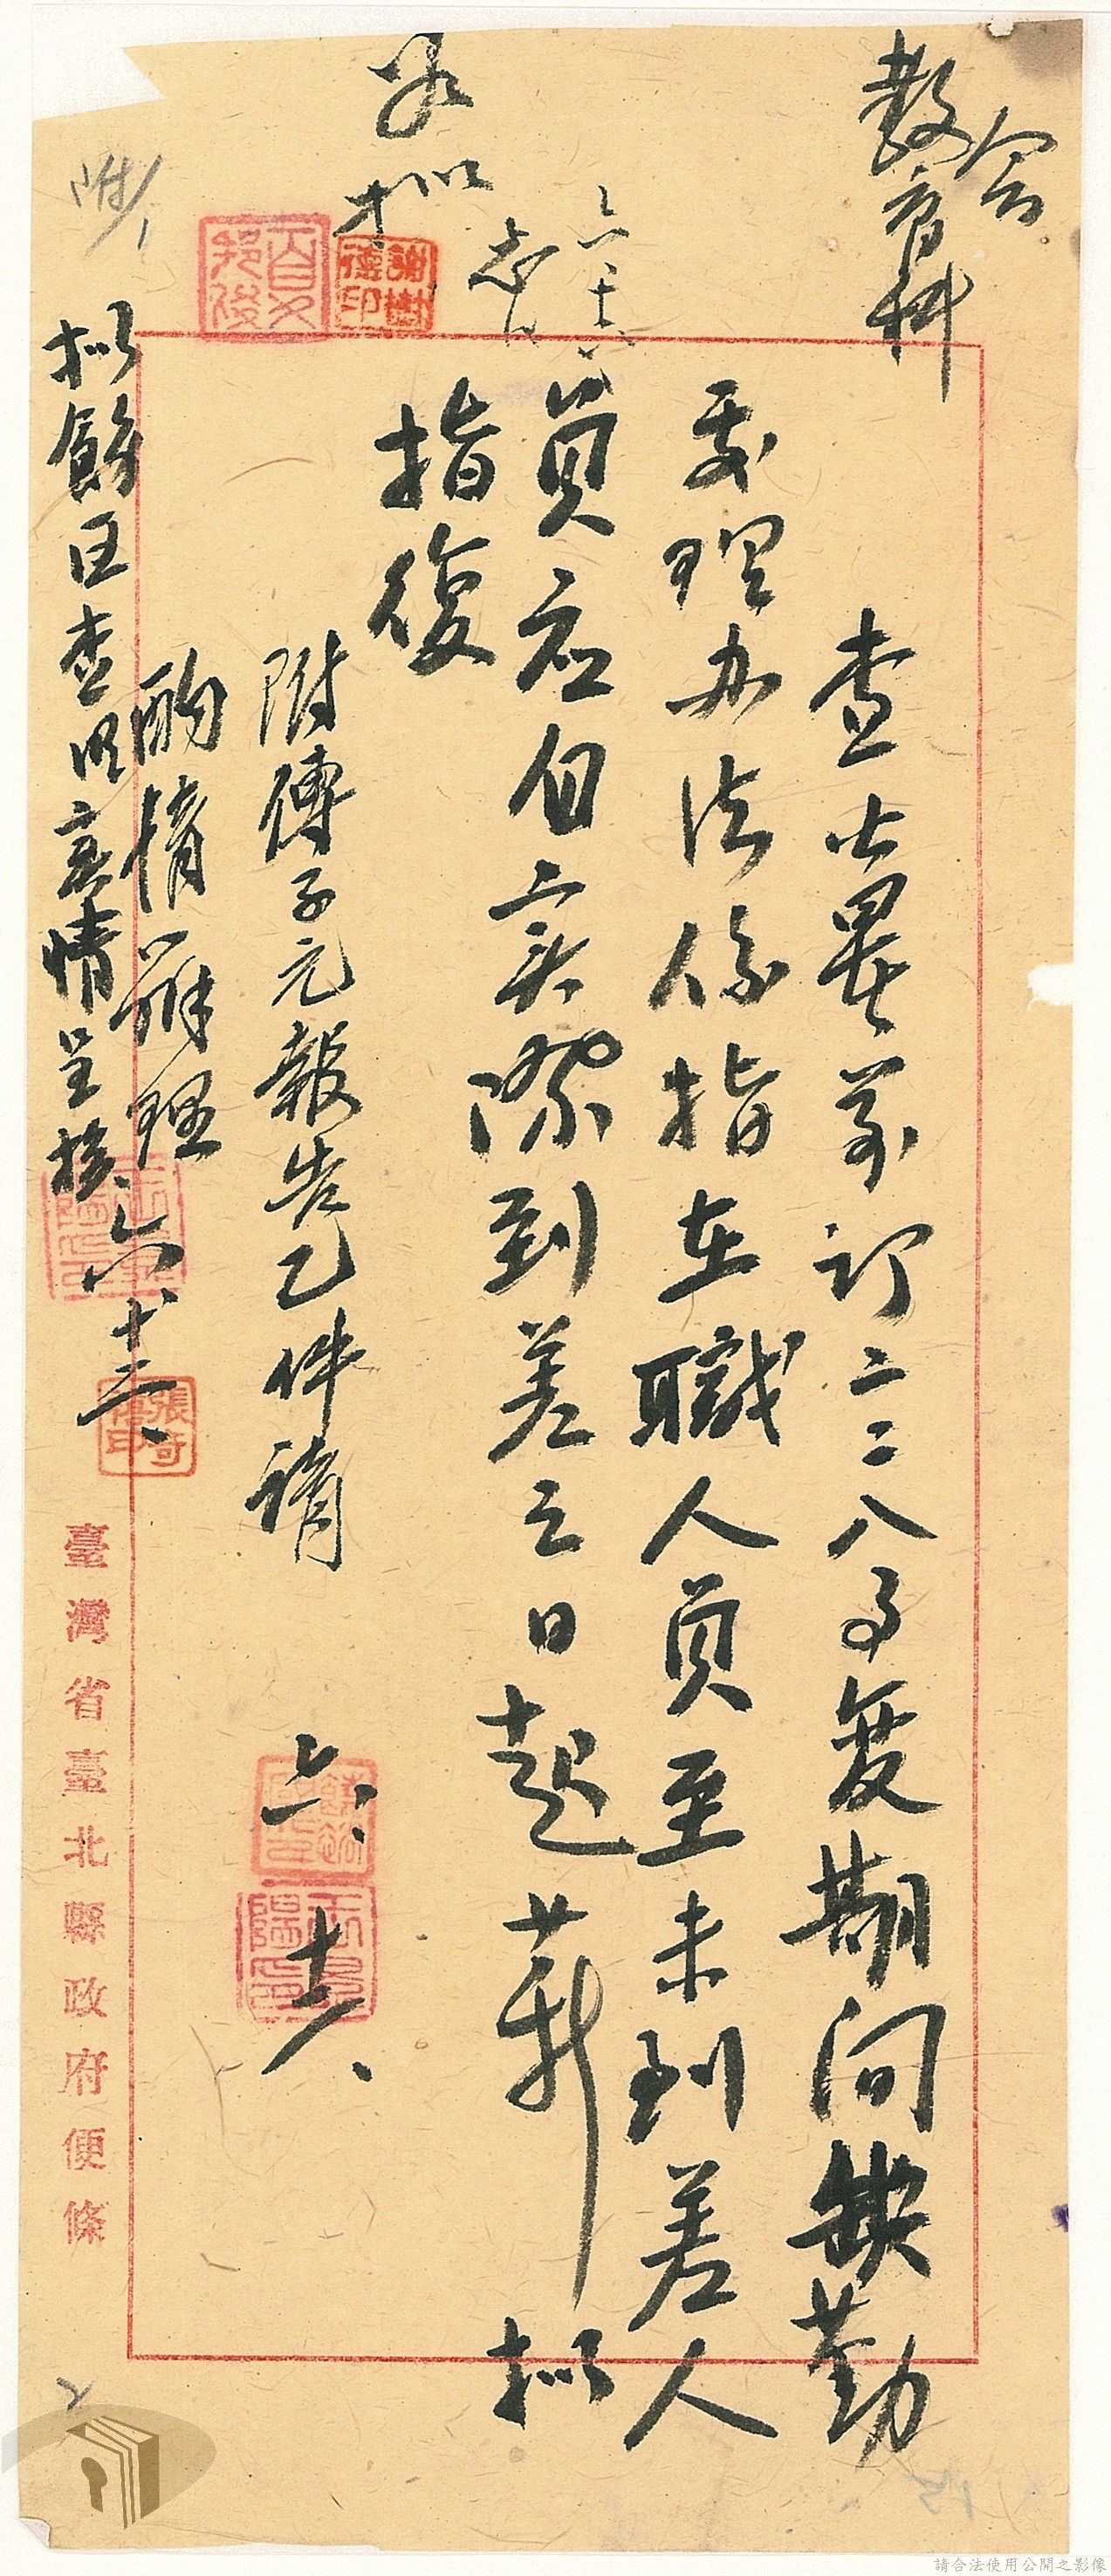 會
教育科
查此案前訂二二八事變期间缺勤
處理办法係指在職人員至未到差人
員应自实際到差之日起薪拟
指復
附傅子元報告乙件請
六、十六、
如拟
六十六
酌情辦理
拟飭因查明实情呈核、六十三、
附1
謝樹德印
張奇
臺灣省臺北縣政府便條
2
請合法使用公開之影像